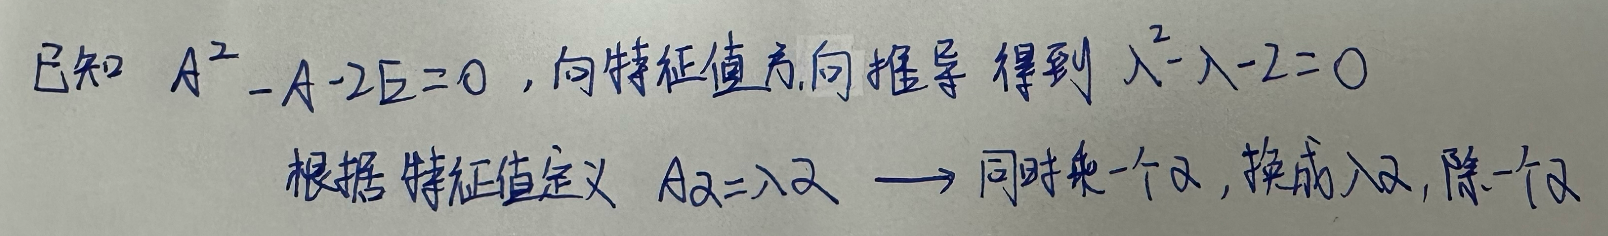 已知 A²-A-2E=0，向特征值方向推导 得到 λ²-λ-2=0
根据特征值定义 Aα=λα ⟶ 同时乘一个α，换成λα，除一个α